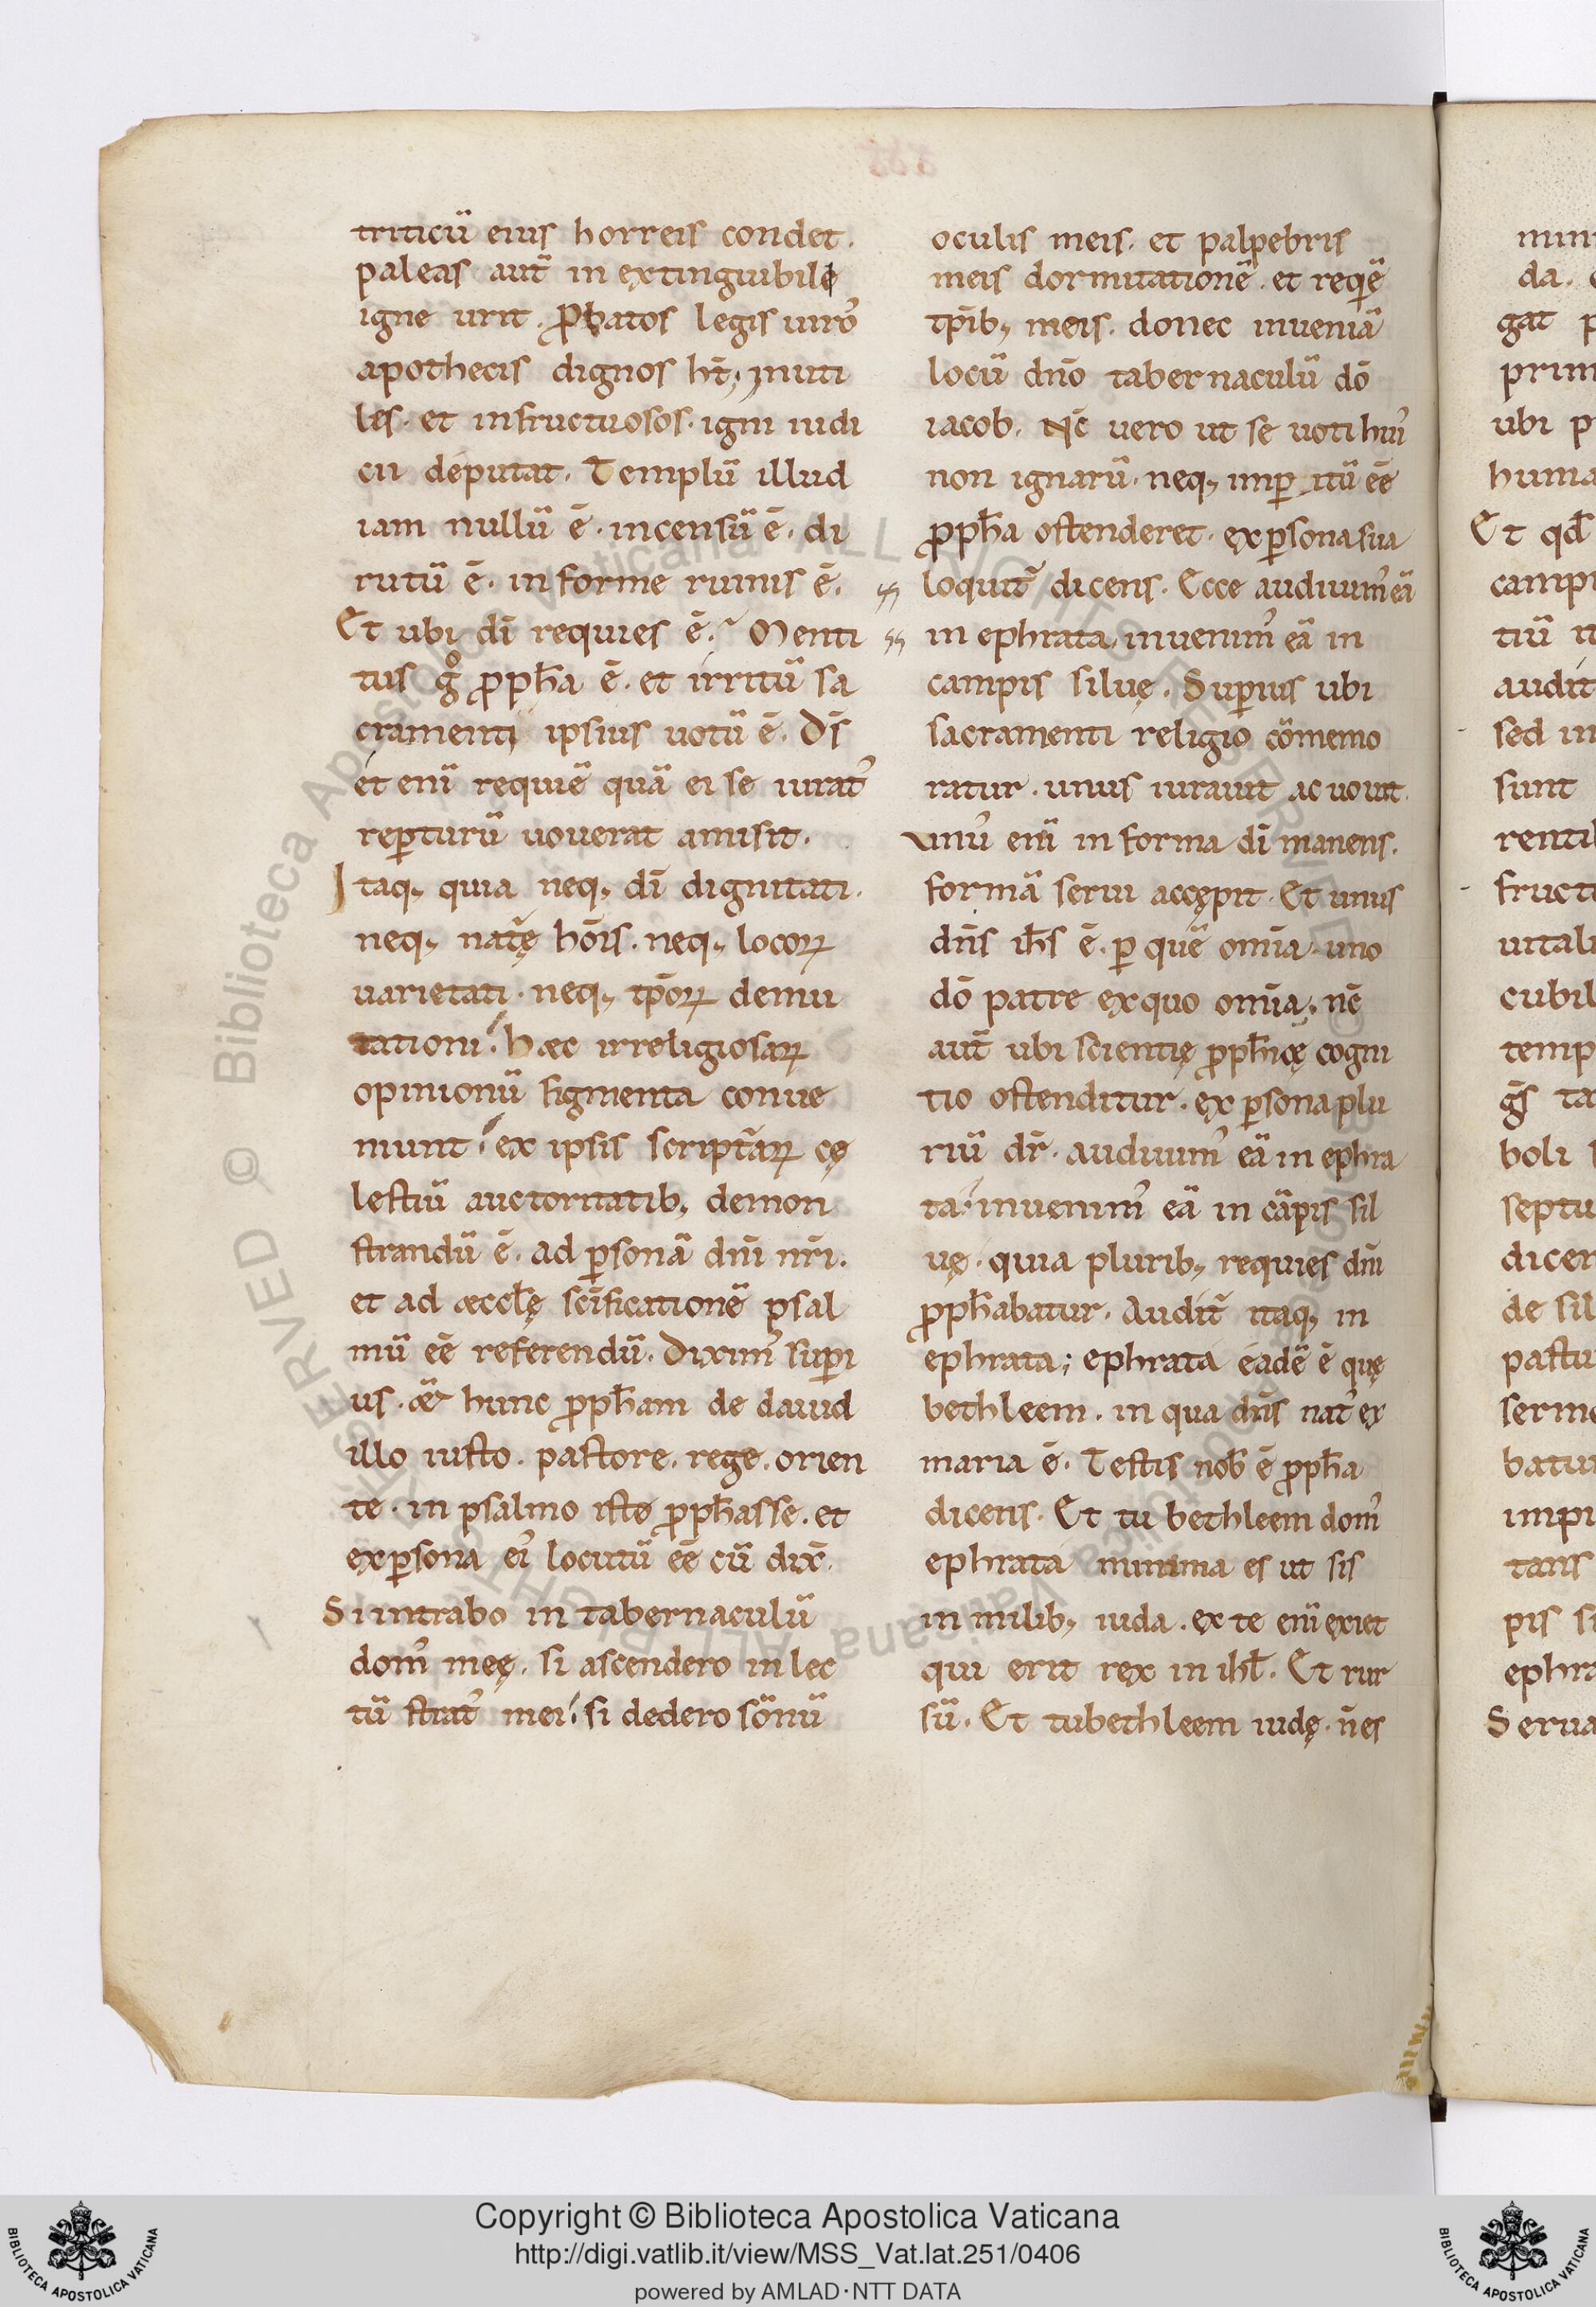 triticū eius horreis condet.
paleas aut̄ in extinguibile
igne urit. ꝓbatos legis uiro᾽
apothecis dignos hn̄t. inuti
les. et infructuosos. igni iudi
cii deputat. Templū illud
iam nullū ē. incensū ē. di
rutū ē. in forme ruinis ē.
Et ubi dī requies ē? Menti
tus gº ꝓph̄a ē. et irritū sa
cramenti ipsius uotū ē. Dſ̄
et enī requiē quā ei se iurat᾽
reꝑturū uouerat amisit.
Itaq; quia neq; dī dignitati.
neq; nat̄ę hōis. neq; locoꝝ
uarietati. neq; tp̄oꝝ demu
tationi. hæc irreligiosaꝝ
opinionū figmenta conue
niunt. ex ipsis script̄aꝝ cę
lestiū auctoritatib; demon
strandū ē. ad ꝑsonā dn̄i nr̄i.
et ad æccl̄ę sc̄ificationē psal
mū eē referendū. Diximꝰ suꝑi
us. & hunc ꝓph̄am de dauid
illo iusto. pastore. rege. orien
te. in psalmo isto ꝓph̄asse. et
ex ꝑsona eiꝰ locutū eē cū dix̄.
Si intrabo in tabernaculū
domꝰ meę. si ascendero in lec
tū stratꝰ mei. si dedero sōnū
oculis meis. et palpebris
meis dormitationē. et reqiē
tp̄ib; meis. donec inueniā
locū dn̄o tabernaculū dō
iacob. Nc̄ uero ut se uoti huiꝰ
non ignarū. neq; imꝑitū eē
ꝓph̄a ostenderet. ex ꝑsona sua
loquit̄ dicens. Ecce audiuimꝰ eā
in ephrata inuenimꝰ eā in
campis siluę. Suꝑius ubi
sacramenti religio cōmemo
ratur. unus iurauit ac uouit.
Unuꝰ enī in forma dī manens.
formā serui accępit. Et unus
dn̄s ih̄s ē. ꝑ quē omīa. uno
dō patre ex quo omīa. nc̄
aut̄ ubi scientię ꝓph̄icę cogni
tio ostenditur. ex ꝑsona plu
riū dr̄. audiuimꝰ eā in ephra
ta. inuenimꝰ eā in cāpis sil
uę. quia plurib; requies dn̄i
ꝓph̄abatur. Audit̄ itaq; in
ephrata; ephrata eadē ē quę
bethleem. in qua dn̄s natꝰ ex
maria ē. Testis nob̄ ē ꝓph̄a
dicens. Et tu bethleem domꝰ
ephrata minima es ut sis
in milib; iuda. ex te enī exiet
qui erit rex in ihl̄. Et rur
sū. Et tu bethleem iudę. n̄ es
Copyright © Biblioteca Apostolica Vaticana
http://digi.vatlib.it/view/MSS_Vat.lat.251/0406
powered by AMLAD·NTT DATA